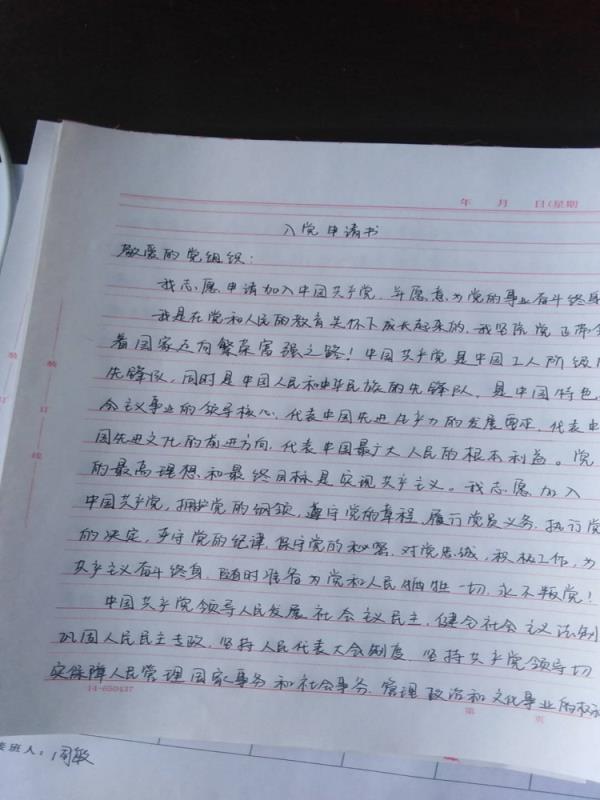 年 月 日(星期
入党申请书
敬爱的党组织：
我志愿申请加入中国共产党，并愿意为党的事业奋斗终身
我是在党和人民的教育关怀下成长起来的，我坚信党正带
着国家走向繁荣富强之路！中国共产党是中国工人阶级
先锋队，同时是中国人民和中华民族的先锋队，是中国特色
会主义事业的领导核心，代表中国先进生产力的发展要求，代表中
国先进文化的前进方向，代表中国最广大人民的根本利益。党
的最高理想和最终目标是实现共产主义。我志愿加入
中国共产党，拥护党的纲领，遵守党的章程，履行党员义务，执行党
的决定，严守党的纪律，保守党的秘密，对党忠诚，积极工作，为
共产主义奋斗终身，随时准备为党和人民牺牲一切，永不叛党！
中国共产党领导人民发展社会主义民主，健全社会主义法制
巩固人民民主专政，坚持人民代表大会制度，坚持共产党领导
实保障人民管理国家事务和社会事务，管理政治和文化事业的权
14-650437
第 页
装
订
线
班人：